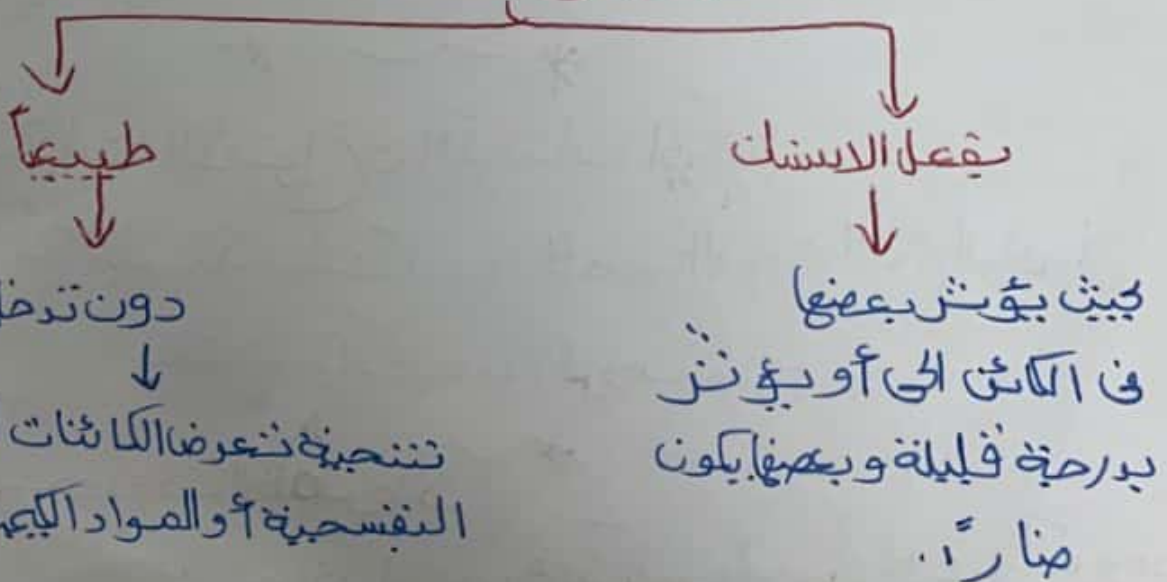 بفعل الانسان
طبيعياً
بحيث يؤثر بعضها
في الكائن الحي أو يؤثر
بدرجة قليلة وبعضها يكون
ضاراً.
دون تدخل
نتيجة تعرض الكائنات
البنفسجية أو المواد الكيم